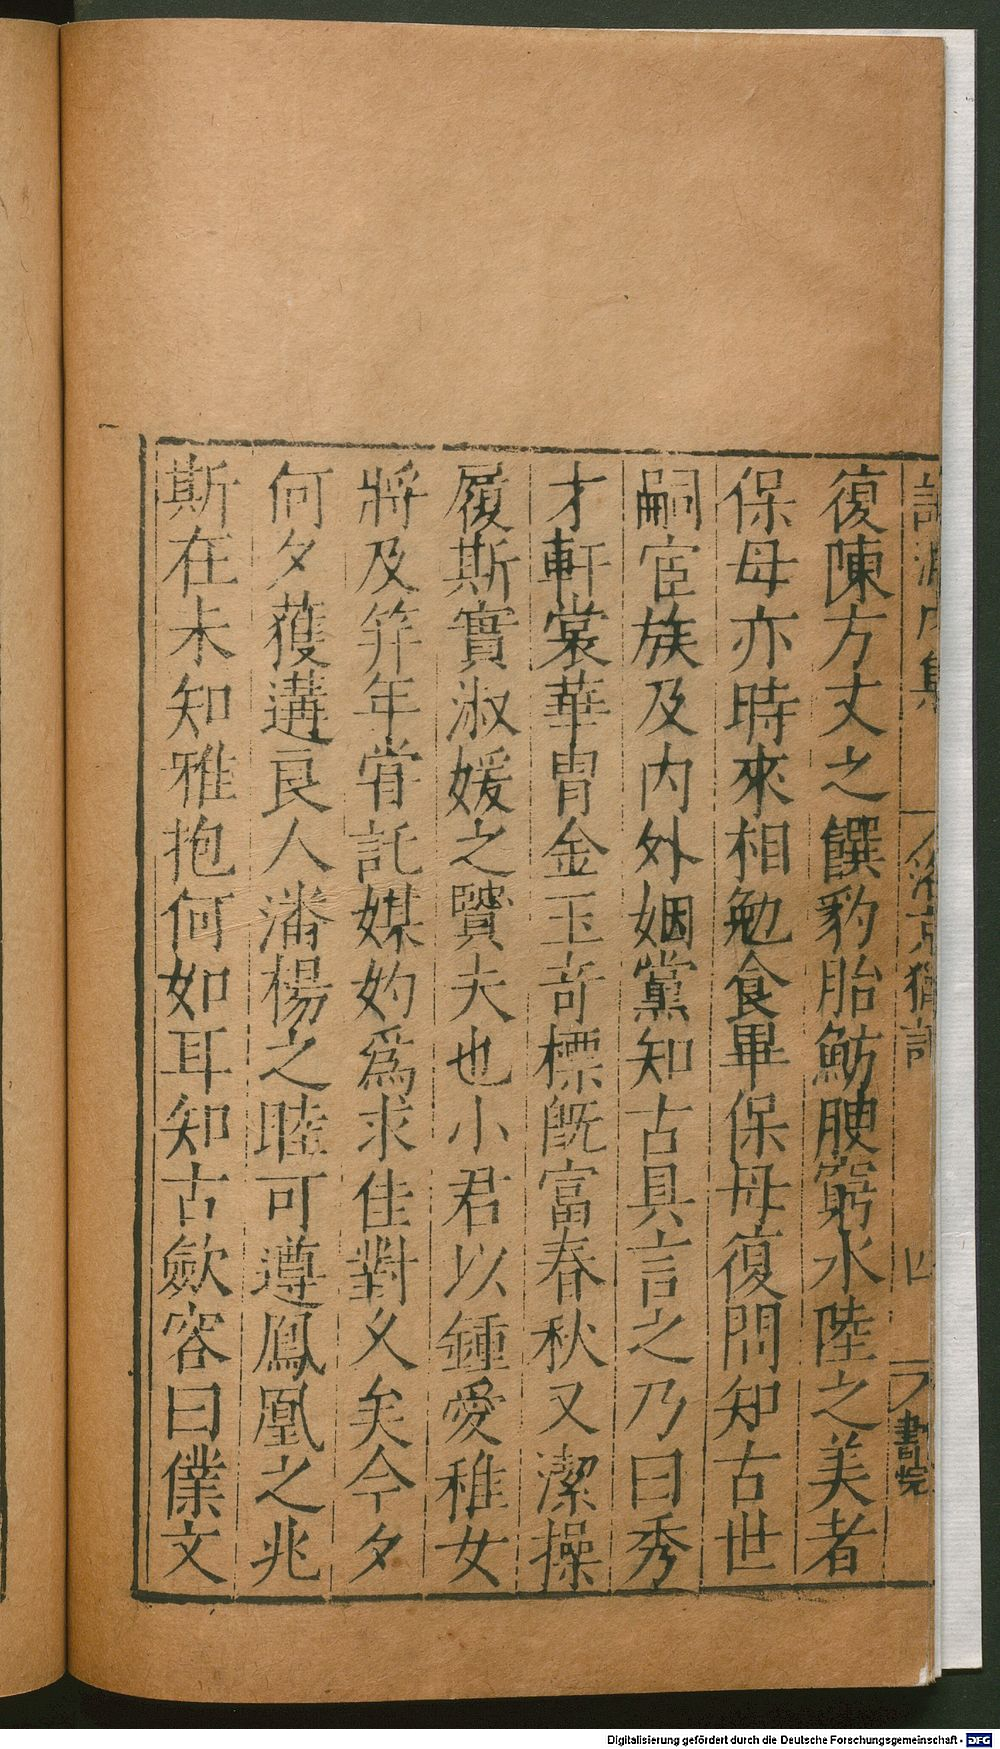 復陳方丈之饌豹胎魴腴窮水陸之美者
保母亦時來相勉食畢保母復問知古世
嗣宦族及内外姻黨知古具言之乃曰秀
才軒裳華胄金玉竒標旣富春秋又潔操
履斯實淑媛之賢夫也小君以鍾愛稚女
將及笄年甞託媒妁爲求佳對久矣今夕
何夕獲遘良人潘楊之睦可遵鳳凰之兆
斯在未知雅抱何如耳知古歛容曰僕文
四
書院
Digitalisierung gefördert durch die Deutsche Forschungsgemeinschaft - DFG